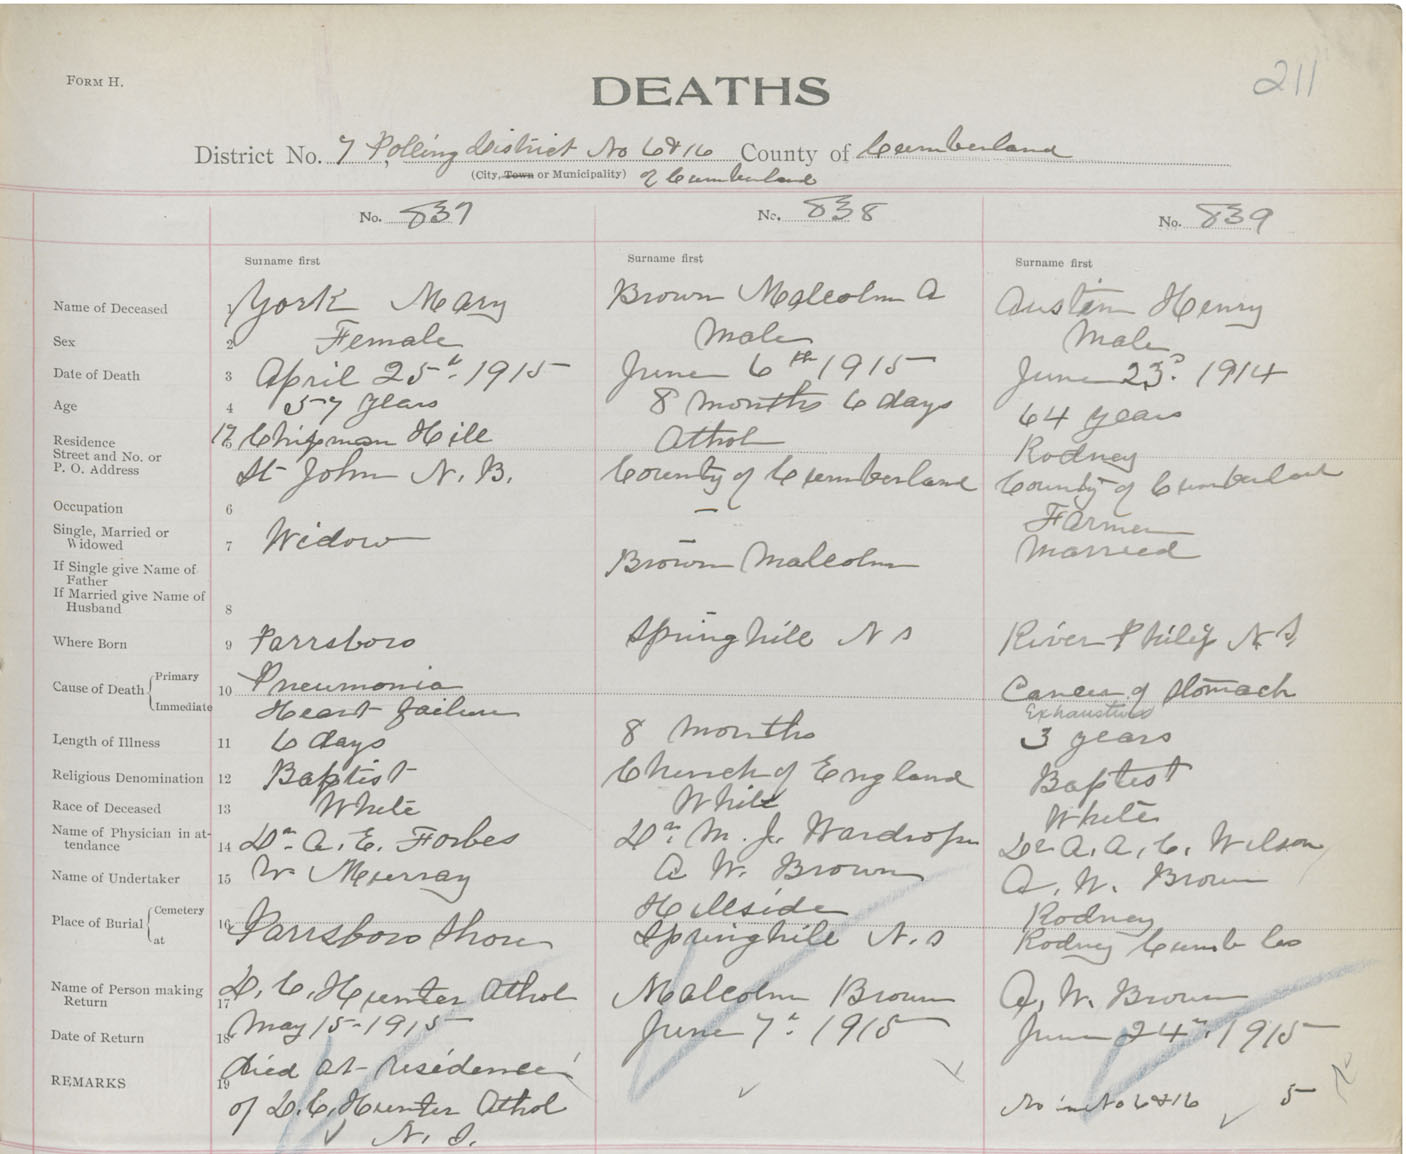 FORM H.
211
DEATHS
District No. 7 Polling District No 6 & 16 County of Cumberland
(City, Town or Municipality) of Cumberland
No. 837 No. 838 No. 839
Surname first Surname first Surname first
Name of Deceased 1 York Mary Brown Malcolm A Austin Henry
Sex 2 Female Male Male
Date of Death 3 April 25th 1915 June 6th 1915 June 23d 1914
Age 4 57 years 8 months 6 days 64 years
Residence 5 17 Chipman Hill Athol Rodney
Street and No. or
P. O. Address St John N. B. County of Cumberland County of Cumberland
Occupation 6 – Farmer
Single, Married or
Widowed 7 Widow – Married
If Single give Name of
Father Brown Malcolm
If Married give Name of
Husband 8
Where Born 9 Parrsboro Springhill N S River Philip N. S.
Cause of Death Primary 10 Pneumonia Cancer of Stomach
Immediate Heart failure Exhaustion
Length of Illness 11 6 days 8 months 3 years
Religious Denomination 12 Baptist Church of England Baptist
Race of Deceased 13 White White White
Name of Physician in at-
tendance 14 Dr. A. E. Forbes Dr. M. J. Wardrope Dr A. A. C. Wilson
Name of Undertaker 15 W Murray A W. Brown A. W. Brown
Place of Burial Cemetery 16 Hillside Rodney
at Parrsboro Shore Springhill N. S Rodney Cumb Co
Name of Person making
Return 17 D. C. Hunter Athol Malcolm Brown A. W. Brown
Date of Return 18 May 15-1915 June 7th 1915 June 24th 1915
REMARKS 19 died at residence
of D. C. Hunter Athol No in No 6 & 16 5
N. S.